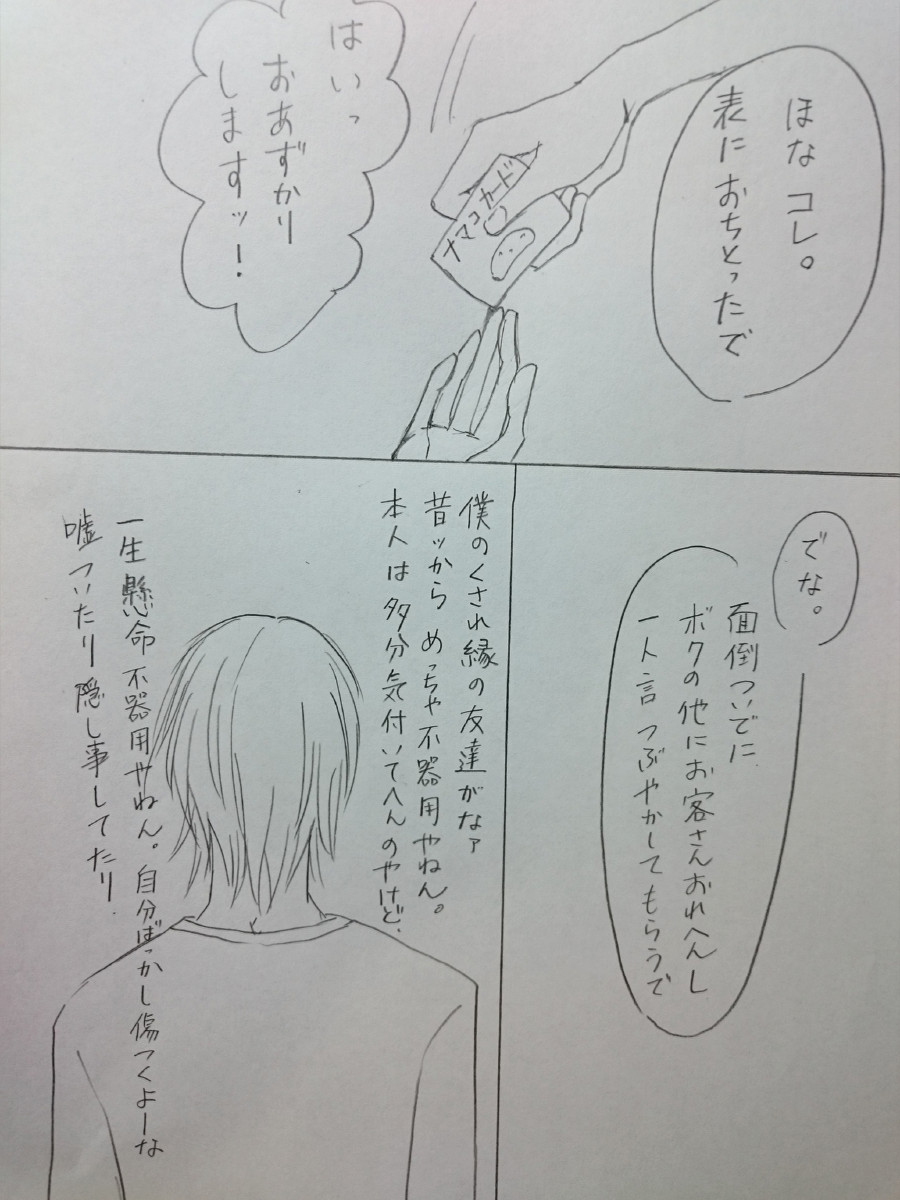 ほな コレ。
表に おちとったで
ナマコカード
はいっ
おあずかり
しますッー!
でな。
面倒ついでに
ボクの他にお客さんおれへんし
一人言 つぶやかしてもらうで
僕のくされ縁の友達がなァ
昔ッから めっちゃ不器用やねん。
本人は 多分気付いてへんのやけど、
一生懸命 不器用やねん。自分ばっかし傷つくよーな
嘘ついたり隠し事してたり